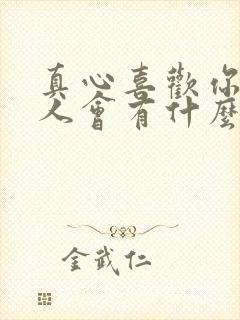 真心喜歡你
人會有什麼
金武仁